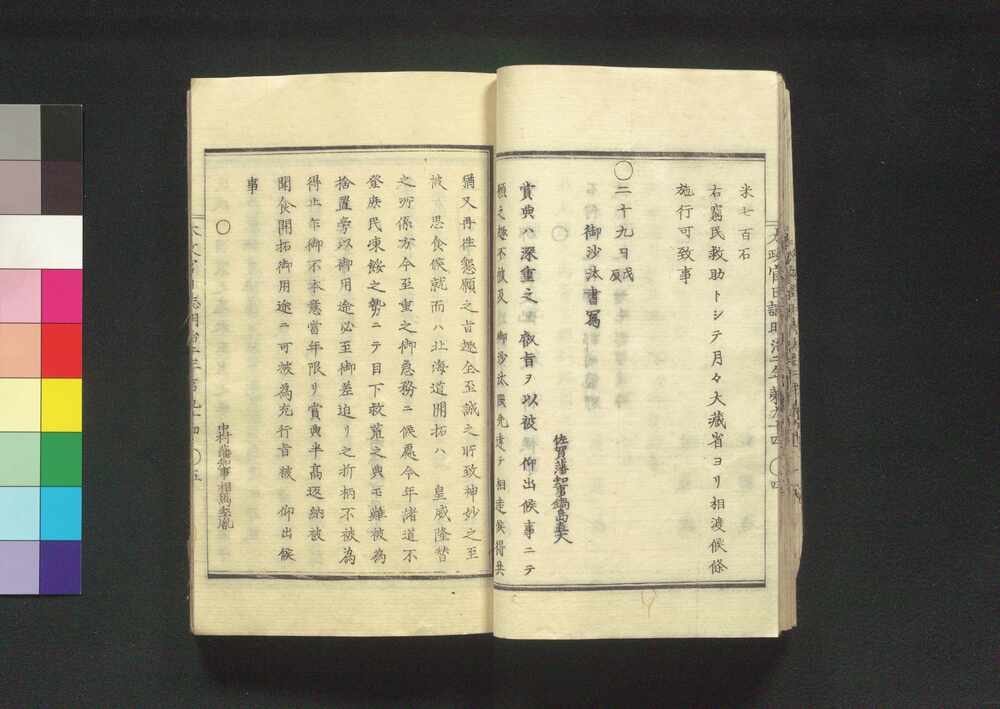 米七百石
右窮民救助トシテ月々大藏省ヨリ相渡候條
施行可致事
○二十九日戊辰
御沙汰書寫
○
佐賀藩知事鍋島直大
賞典ハ深重之 叡旨ヲ以被 仰出候事ニテ
願之趣不被及 御沙汰段先達テ相達候得共
猶又再往懇願之旨趣全至誠之所致神妙之至
被 思食候就而ハ北海道開拓ハ 皇威隆替
之所係方今至重之御急務ニ候處今年諸道不
登庶民凍餒之勢ニテ目下救荒之典モ難被為
捨置旁以御用途必至御差迫リ之折柄不被為
得止乍御不本意當年限リ賞典半高返納被
聞食開拓御用途ニ可被為充行旨被 仰出候
事
○
中村藩知事相馬季胤
太政官日誌明治二年第九十四 ○四
○五